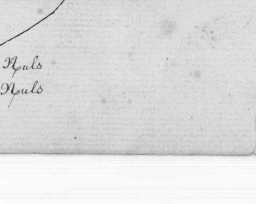 Nuls
Nuls